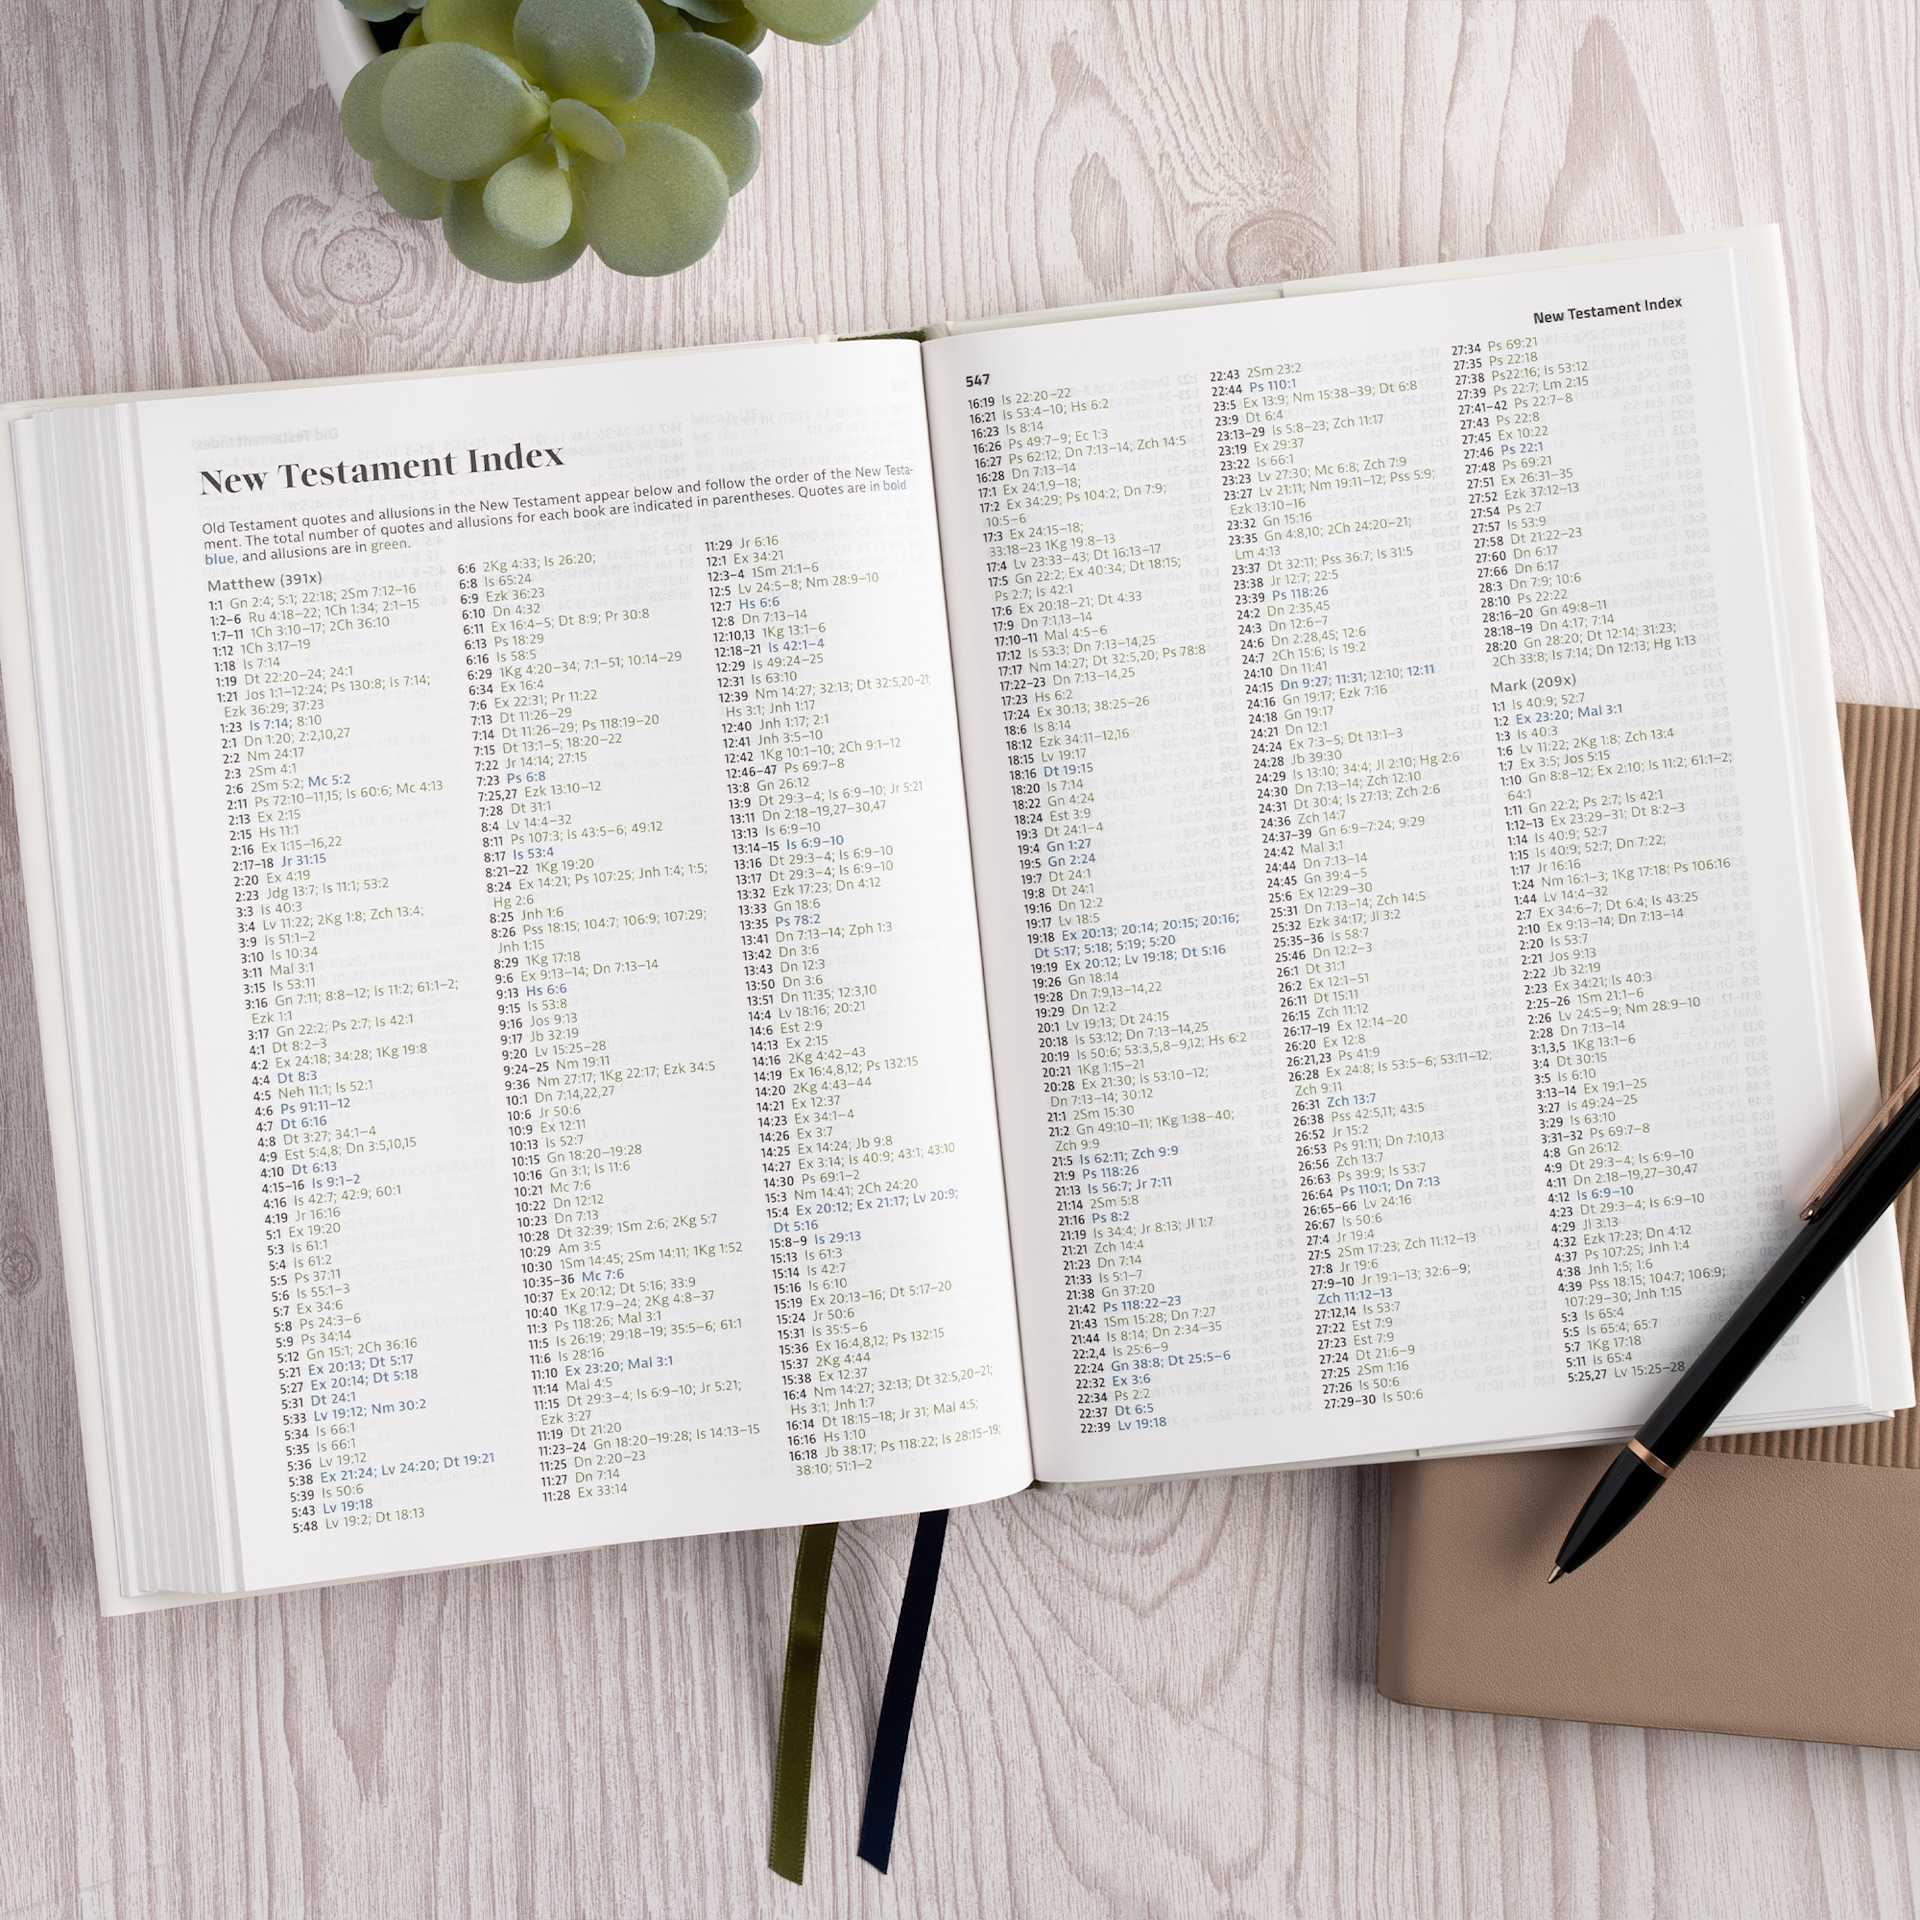 New Testament Index
Old Testament quotes and allusions in the New Testament appear below and follow the order of the New Testa-
ment. The total number of quotes and allusions for each book are indicated in parentheses. Quotes are in bold
blue, and allusions are in green.
Matthew (391x)
1:1 Gn 2:4; 5:1; 22:18; 2Sm 7:12–16
1:2–6 Ru 4:18–22; 1Ch 1:34; 2:1–15
1:7–11 1Ch 3:10–17; 2Ch 36:10
1:12 1Ch 3:17–19
1:18 Is 7:14
1:19 Dt 22:20–24; 24:1
1:21 Jos 1:1–12:24; Ps 130:8; Is 7:14;
Ezk 36:29; 37:23
1:23 Is 7:14; 8:10
2:1 Dn 1:20; 2:2,10,27
2:2 Nm 24:17
2:3 2Sm 4:1
2:6 2Sm 5:2; Mc 5:2
2:11 Ps 72:10–11,15; Is 60:6; Mc 4:13
2:13 Ex 2:15
2:15 Hs 11:1
2:16 Ex 1:15–16,22
2:17–18 Jr 31:15
2:20 Ex 4:19
2:23 Jdg 13:7; Is 11:1; 53:2
3:3 Is 40:3
3:4 Lv 11:22; 2Kg 1:8; Zch 13:4;
3:9 Is 51:1–2
3:10 Is 10:34
3:11 Mal 3:1
3:15 Is 53:11
3:16 Gn 7:11; 8:8–12; Is 11:2; 61:1–2;
Ezk 1:1
3:17 Gn 22:2; Ps 2:7; Is 42:1
4:1 Dt 8:2–3
4:2 Ex 24:18; 34:28; 1Kg 19:8
4:4 Dt 8:3
4:5 Neh 11:1; Is 52:1
4:6 Ps 91:11–12
4:7 Dt 6:16
4:8 Dt 3:27; 34:1–4
4:9 Est 5:4,8; Dn 3:5,10,15
4:10 Dt 6:13
4:15–16 Is 9:1–2
4:16 Is 42:7; 42:9; 60:1
4:19 Jr 16:16
5:1 Ex 19:20
5:3 Is 61:1
5:4 Is 61:2
5:5 Ps 37:11
5:6 Is 55:1–3
5:7 Ex 34:6
5:8 Ps 24:3–6
5:9 Ps 34:14
5:12 Gn 15:1; 2Ch 36:16
5:21 Ex 20:13; Dt 5:17
5:27 Ex 20:14; Dt 5:18
5:31 Dt 24:1
5:33 Lv 19:12; Nm 30:2
5:34 Is 66:1
5:35 Is 66:1
5:36 Lv 19:12
5:38 Ex 21:24; Lv 24:20; Dt 19:21
5:39 Is 50:6
5:43 Lv 19:18
5:48 Lv 19:2; Dt 18:13
6:6 2Kg 4:33; Is 26:20;
6:8 Is 65:24
6:9 Ezk 36:23
6:10 Dn 4:32
6:11 Ex 16:4–5; Dt 8:9; Pr 30:8
6:13 Ps 18:29
6:16 Is 58:5
6:29 1Kg 4:20–34; 7:1–51; 10:14–29
6:34 Ex 16:4
7:6 Ex 22:31; Pr 11:22
7:13 Dt 11:26–29
7:14 Dt 11:26–29; Ps 118:19–20
7:15 Dt 13:1–5; 18:20–22
7:22 Jr 14:14; 27:15
7:23 Ps 6:8
7:25,27 Ezk 13:10–12
7:28 Dt 31:1
8:4 Lv 14:4–32
8:11 Ps 107:3; Is 43:5–6; 49:12
8:17 Is 53:4
8:21–22 1Kg 19:20
8:24 Ex 14:21; Ps 107:25; Jnh 1:4; 1:5;
Hg 2:6
8:25 Jnh 1:6
8:26 Pss 18:15; 104:7; 106:9; 107:29;
Jnh 1:15
8:29 1Kg 17:18
9:6 Ex 9:13–14; Dn 7:13–14
9:13 Hs 6:6
9:15 Is 53:8
9:16 Jos 9:13
9:17 Jb 32:19
9:20 Lv 15:25–28
9:24–25 Nm 19:11
9:36 Nm 27:17; 1Kg 22:17; Ezk 34:5
10:1 Dn 7:14,22,27
10:6 Jr 50:6
10:9 Ex 12:11
10:13 Is 52:7
10:15 Gn 18:20–19:28
10:16 Gn 3:1; Is 11:6
10:21 Mc 7:6
10:22 Dn 12:12
10:23 Dn 7:13
10:28 Dt 32:39; 1Sm 2:6; 2Kg 5:7
10:29 Am 3:5
10:30 1Sm 14:45; 2Sm 14:11; 1Kg 1:52
10:35–36 Mc 7:6
10:37 Ex 20:12; Dt 5:16; 33:9
10:40 1Kg 17:9–24; 2Kg 4:8–37
11:3 Ps 118:26; Mal 3:1
11:5 Is 26:19; 29:18–19; 35:5–6; 61:1
11:6 Is 28:16
11:10 Ex 23:20; Mal 3:1
11:14 Mal 4:5
11:15 Dt 29:3–4; Is 6:9–10; Jr 5:21;
Ezk 3:27
11:19 Dt 21:20
11:23–24 Gn 18:20–19:28; Is 14:13–15
11:25 Dn 2:20–23
11:27 Dn 7:14
11:28 Ex 33:14
11:29 Jr 6:16
12:1 Ex 34:21
12:3–4 1Sm 21:1–6
12:5 Lv 24:5–8; Nm 28:9–10
12:7 Hs 6:6
12:8 Dn 7:13–14
12:10,13 1Kg 13:1–6
12:18–21 Is 42:1–4
12:29 Is 49:24–25
12:31 Is 63:10
12:39 Nm 14:27; 32:13; Dt 32:5,20–21;
Hs 3:1; Jnh 1:17
12:40 Jnh 1:17; 2:1
12:41 Jnh 3:5–10
12:42 1Kg 10:1–10; 2Ch 9:1–12
12:46–47 Ps 69:7–8
13:8 Gn 26:12
13:9 Dt 29:3–4; Is 6:9–10; Jr 5:21
13:11 Dn 2:18–19,27–30,47
13:13 Is 6:9–10
13:14–15 Is 6:9–10
13:16 Dt 29:3–4; Is 6:9–10
13:17 Dt 29:3–4; Is 6:9–10
13:32 Ezk 17:23; Dn 4:12
13:33 Gn 18:6
13:35 Ps 78:2
13:41 Dn 7:13–14; Zph 1:3
13:42 Dn 3:6
13:43 Dn 12:3
13:50 Dn 3:6
13:51 Dn 11:35; 12:3,10
14:4 Lv 18:16; 20:21
14:6 Est 2:9
14:13 Ex 2:15
14:16 2Kg 4:42–43
14:19 Ex 16:4,8,12; Ps 132:15
14:20 2Kg 4:43–44
14:21 Ex 12:37
14:23 Ex 34:1–4
14:26 Ex 3:7
14:25 Ex 14:24; Jb 9:8
14:27 Ex 3:14; Is 40:9; 43:1; 43:10
14:30 Ps 69:1–2
15:3 Nm 14:41; 2Ch 24:20
15:4 Ex 20:12; Ex 21:17; Lv 20:9;
Dt 5:16
15:8–9 Is 29:13
15:13 Is 61:3
15:14 Is 42:7
15:16 Is 6:10
15:19 Ex 20:13–16; Dt 5:17–20
15:24 Jr 50:6
15:31 Is 35:5–6
15:36 Ex 16:4,8,12; Ps 132:15
15:37 2Kg 4:44
15:38 Ex 12:37
16:4 Nm 14:27; 32:13; Dt 32:5,20–21;
Hs 3:1; Jnh 1:7
16:14 Dt 18:15–18; Jr 31; Mal 4:5;
16:16 Hs 1:10
16:18 Jb 38:17; Ps 118:22; Is 28:15–19;
38:10; 51:1–2
547
New Testament Index
16:19 Is 22:20–22
16:21 Is 53:4–10; Hs 6:2
16:23 Is 8:14
16:26 Ps 49:7–9; Ec 1:3
16:27 Ps 62:12; Dn 7:13–14, Zch 14:5
16:28 Dn 7:13–14
17:1 Ex 24:1,9–18;
17:2 Ex 34:29; Ps 104:2; Dn 7:9;
10:5–6
17:3 Ex 24:15–18;
33:18–23 1Kg 19:8–13
17:4 Lv 23:33–43; Dt 16:13–17
17:5 Gn 22:2; Ex 40:34; Dt 18:15;
Ps 2:7; Is 42:1
17:6 Ex 20:18–21; Dt 4:33
17:9 Dn 7:1,13–14
17:10–11 Mal 4:5–6
17:12 Is 53:3; Dn 7:13–14,25
17:17 Nm 14:27; Dt 32:5,20; Ps 78:8
17:22–23 Dn 7:13–14,25
17:23 Hs 6:2
17:24 Ex 30:13; 38:25–26
18:6 Is 8:14
18:12 Ezk 34:11–12,16
18:15 Lv 19:17
18:16 Dt 19:15
18:20 Is 7:14
18:22 Gn 4:24
18:24 Est 3:9
19:3 Dt 24:1–4
19:4 Gn 1:27
19:5 Gn 2:24
19:7 Dt 24:1
19:8 Dt 24:1
19:16 Dn 12:2
19:17 Lv 18:5
19:18 Ex 20:13; 20:14; 20:15; 20:16;
Dt 5:17; 5:18; 5:19; 5:20
19:19 Ex 20:12; Lv 19:18; Dt 5:16
19:26 Gn 18:14
19:28 Dn 7:9,13–14,22
19:29 Dn 12:2
20:1 Lv 19:13; Dt 24:15
20:18 Is 53:12; Dn 7:13–14,25
20:19 Is 50:6; 53:3,5,8–9,12; Hs 6:2
20:21 1Kg 1:15–21
20:28 Ex 21:30; Is 53:10–12;
Dn 7:13–14; 30:12
21:1 2Sm 15:30
21:2 Gn 49:10–11; 1Kg 1:38–40;
Zch 9:9
21:5 Is 62:11; Zch 9:9
21:9 Ps 118:26
21:13 Is 56:7; Jr 7:11
21:14 2Sm 5:8
21:16 Ps 8:2
21:19 Is 34:4; Jr 8:13; Jl 1:7
21:21 Zch 14:4
21:23 Dn 7:14
21:33 Is 5:1–7
21:38 Gn 37:20
21:42 Ps 118:22–23
21:43 1Sm 15:28; Dn 7:27
21:44 Is 8:14; Dn 2:34–35
22:2,4 Is 25:6–9
22:24 Gn 38:8; Dt 25:5–6
22:32 Ex 3:6
22:34 Ps 2:2
22:37 Dt 6:5
22:39 Lv 19:18
22:43 2Sm 23:2
22:44 Ps 110:1
23:5 Ex 13:9; Nm 15:38–39; Dt 6:8
23:9 Dt 6:4
23:13–29 Is 5:8–23; Zch 11:17
23:19 Ex 29:37
23:22 Is 66:1
23:23 Lv 27:30; Mc 6:8; Zch 7:9
23:27 Lv 21:11; Nm 19:11–12; Pss 5:9;
Ezk 13:10–16
23:32 Gn 15:16
23:35 Gn 4:8,10; 2Ch 24:20–21;
Lm 4:13
23:37 Dt 32:11; Pss 36:7; Is 31:5
23:38 Jr 12:7; 22:5
23:39 Ps 118:26
24:2 Dn 2:35,45
24:3 Dn 12:6–7
24:6 Dn 2:28,45; 12:6
24:7 2Ch 15:6; Is 19:2
24:10 Dn 11:41
24:15 Dn 9:27; 11:31; 12:10; 12:11
24:16 Gn 19:17; Ezk 7:16
24:18 Gn 19:17
24:21 Dn 12:1
24:24 Ex 7:3–5; Dt 13:1–3
24:28 Jb 39:30
24:29 Is 13:10; 34:4; Jl 2:10; Hg 2:6
24:30 Dn 7:13–14; Zch 12:10
24:31 Dt 30:4; Is 27:13; Zch 2:6
24:36 Zch 14:7
24:37–39 Gn 6:9–7:24; 9:29
24:42 Mal 3:1
24:44 Dn 7:13–14
24:45 Gn 39:4–5
25:6 Ex 12:29–30
25:31 Dn 7:13–14; Zch 14:5
25:32 Ezk 34:17; Jl 3:2
25:35–36 Is 58:7
25:46 Dn 12:2–3
26:1 Dt 31:1
26:2 Ex 12:1–51
26:11 Dt 15:11
26:15 Zch 11:12
26:17–19 Ex 12:14–20
26:20 Ex 12:8
26:21,23 Ps 41:9
26:28 Ex 24:8; Is 53:5–6; 53:11–12;
Zch 9:11
26:31 Zch 13:7
26:38 Pss 42:5,11; 43:5
26:52 Jr 15:2
26:53 Ps 91:11; Dn 7:10,13
26:56 Zch 13:7
26:63 Ps 39:9; Is 53:7
26:64 Ps 110:1; Dn 7:13
26:65–66 Lv 24:16
26:67 Is 50:6
27:4 Jr 19:4
27:5 2Sm 17:23; Zch 11:12–13
27:8 Jr 19:6
27:9–10 Jr 19:1–13; 32:6–9;
Zch 11:12–13
27:12,14 Is 53:7
27:22 Est 7:9
27:23 Est 7:9
27:24 Dt 21:6–9
27:25 2Sm 1:16
27:26 Is 50:6
27:29–30 Is 50:6
27:34 Ps 69:21
27:35 Ps 22:18
27:38 Ps22:16; Is 53:12
27:39 Ps 22:7; Lm 2:15
27:41–42 Ps 22:7–8
27:43 Ps 22:8
27:45 Ex 10:22
27:46 Ps 22:1
27:48 Ps 69:21
27:51 Ex 26:31–35
27:52 Ezk 37:12–13
27:54 Ps 2:7
27:57 Is 53:9
27:58 Dt 21:22–23
27:60 Dn 6:17
27:66 Dn 6:17
28:3 Dn 7:9; 10:6
28:10 Ps 22:22
28:16–20 Gn 49:8–11
28:18–19 Dn 4:17; 7:14
28:20 Gn 28:20; Dt 12:14; 31:23;
2Ch 33:8; Is 7:14; Dn 12:13; Hg 1:13
Mark (209x)
1:1 Is 40:9; 52:7
1:2 Ex 23:20; Mal 3:1
1:3 Is 40:3
1:6 Lv 11:22; 2Kg 1:8; Zch 13:4
1:7 Ex 3:5; Jos 5:15
1:10 Gn 8:8–12; Ex 2:10; Is 11:2; 61:1–2;
64:1
1:11 Gn 22:2; Ps 2:7; Is 42:1
1:12–13 Ex 23:29–31; Dt 8:2–3
1:14 Is 40:9; 52:7
1:15 Is 40:9; 52:7; Dn 7:22;
1:17 Jr 16:16
1:24 Nm 16:1–3; 1Kg 17:18; Ps 106:16
1:44 Lv 14:4–32
2:7 Ex 34:6–7; Dt 6:4; Is 43:25
2:10 Ex 9:13–14; Dn 7:13–14
2:20 Is 53:7
2:21 Jos 9:13
2:22 Jb 32:19
2:23 Ex 34:21; Is 40:3
2:25–26 1Sm 21:1–6
2:26 Lv 24:5–9; Nm 28:9–10
2:28 Dn 7:13–14
3:1,3,5 1Kg 13:1–6
3:4 Dt 30:15
3:5 Is 6:10
3:13–14 Ex 19:1–25
3:27 Is 49:24–25
3:29 Is 63:10
3:31–32 Ps 69:7–8
4:8 Gn 26:12
4:9 Dt 29:3–4; Is 6:9–10
4:11 Dn 2:18–19,27–30,47
4:12 Is 6:9–10
4:23 Dt 29:3–4; Is 6:9–10
4:29 Jl 3:13
4:32 Ezk 17:23; Dn 4:12
4:37 Ps 107:25; Jnh 1:4
4:38 Jnh 1:5; 1:6
4:39 Pss 18:15; 104:7; 106:9;
107:29–30; Jnh 1:15
5:3 Is 65:4
5:5 Is 65:4; 65:7
5:7 1Kg 17:18
5:11 Is 65:4
5:25,27 Lv 15:25–28